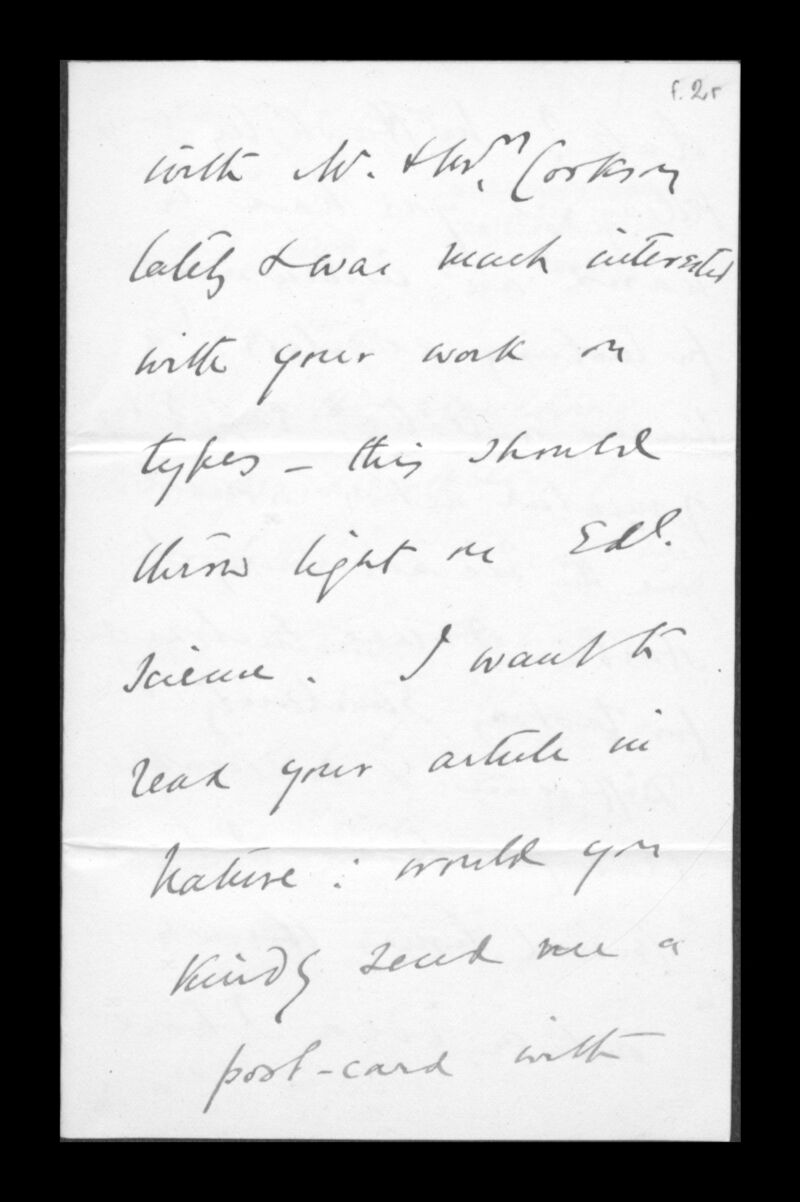 f. 2r
with Mr. & Mrs. Cookson
lately & was much interested
with your work on
types – this should
throw light on Edl.
science. I want to
read your article in
Nature: would you
kindly send me a
post-card with